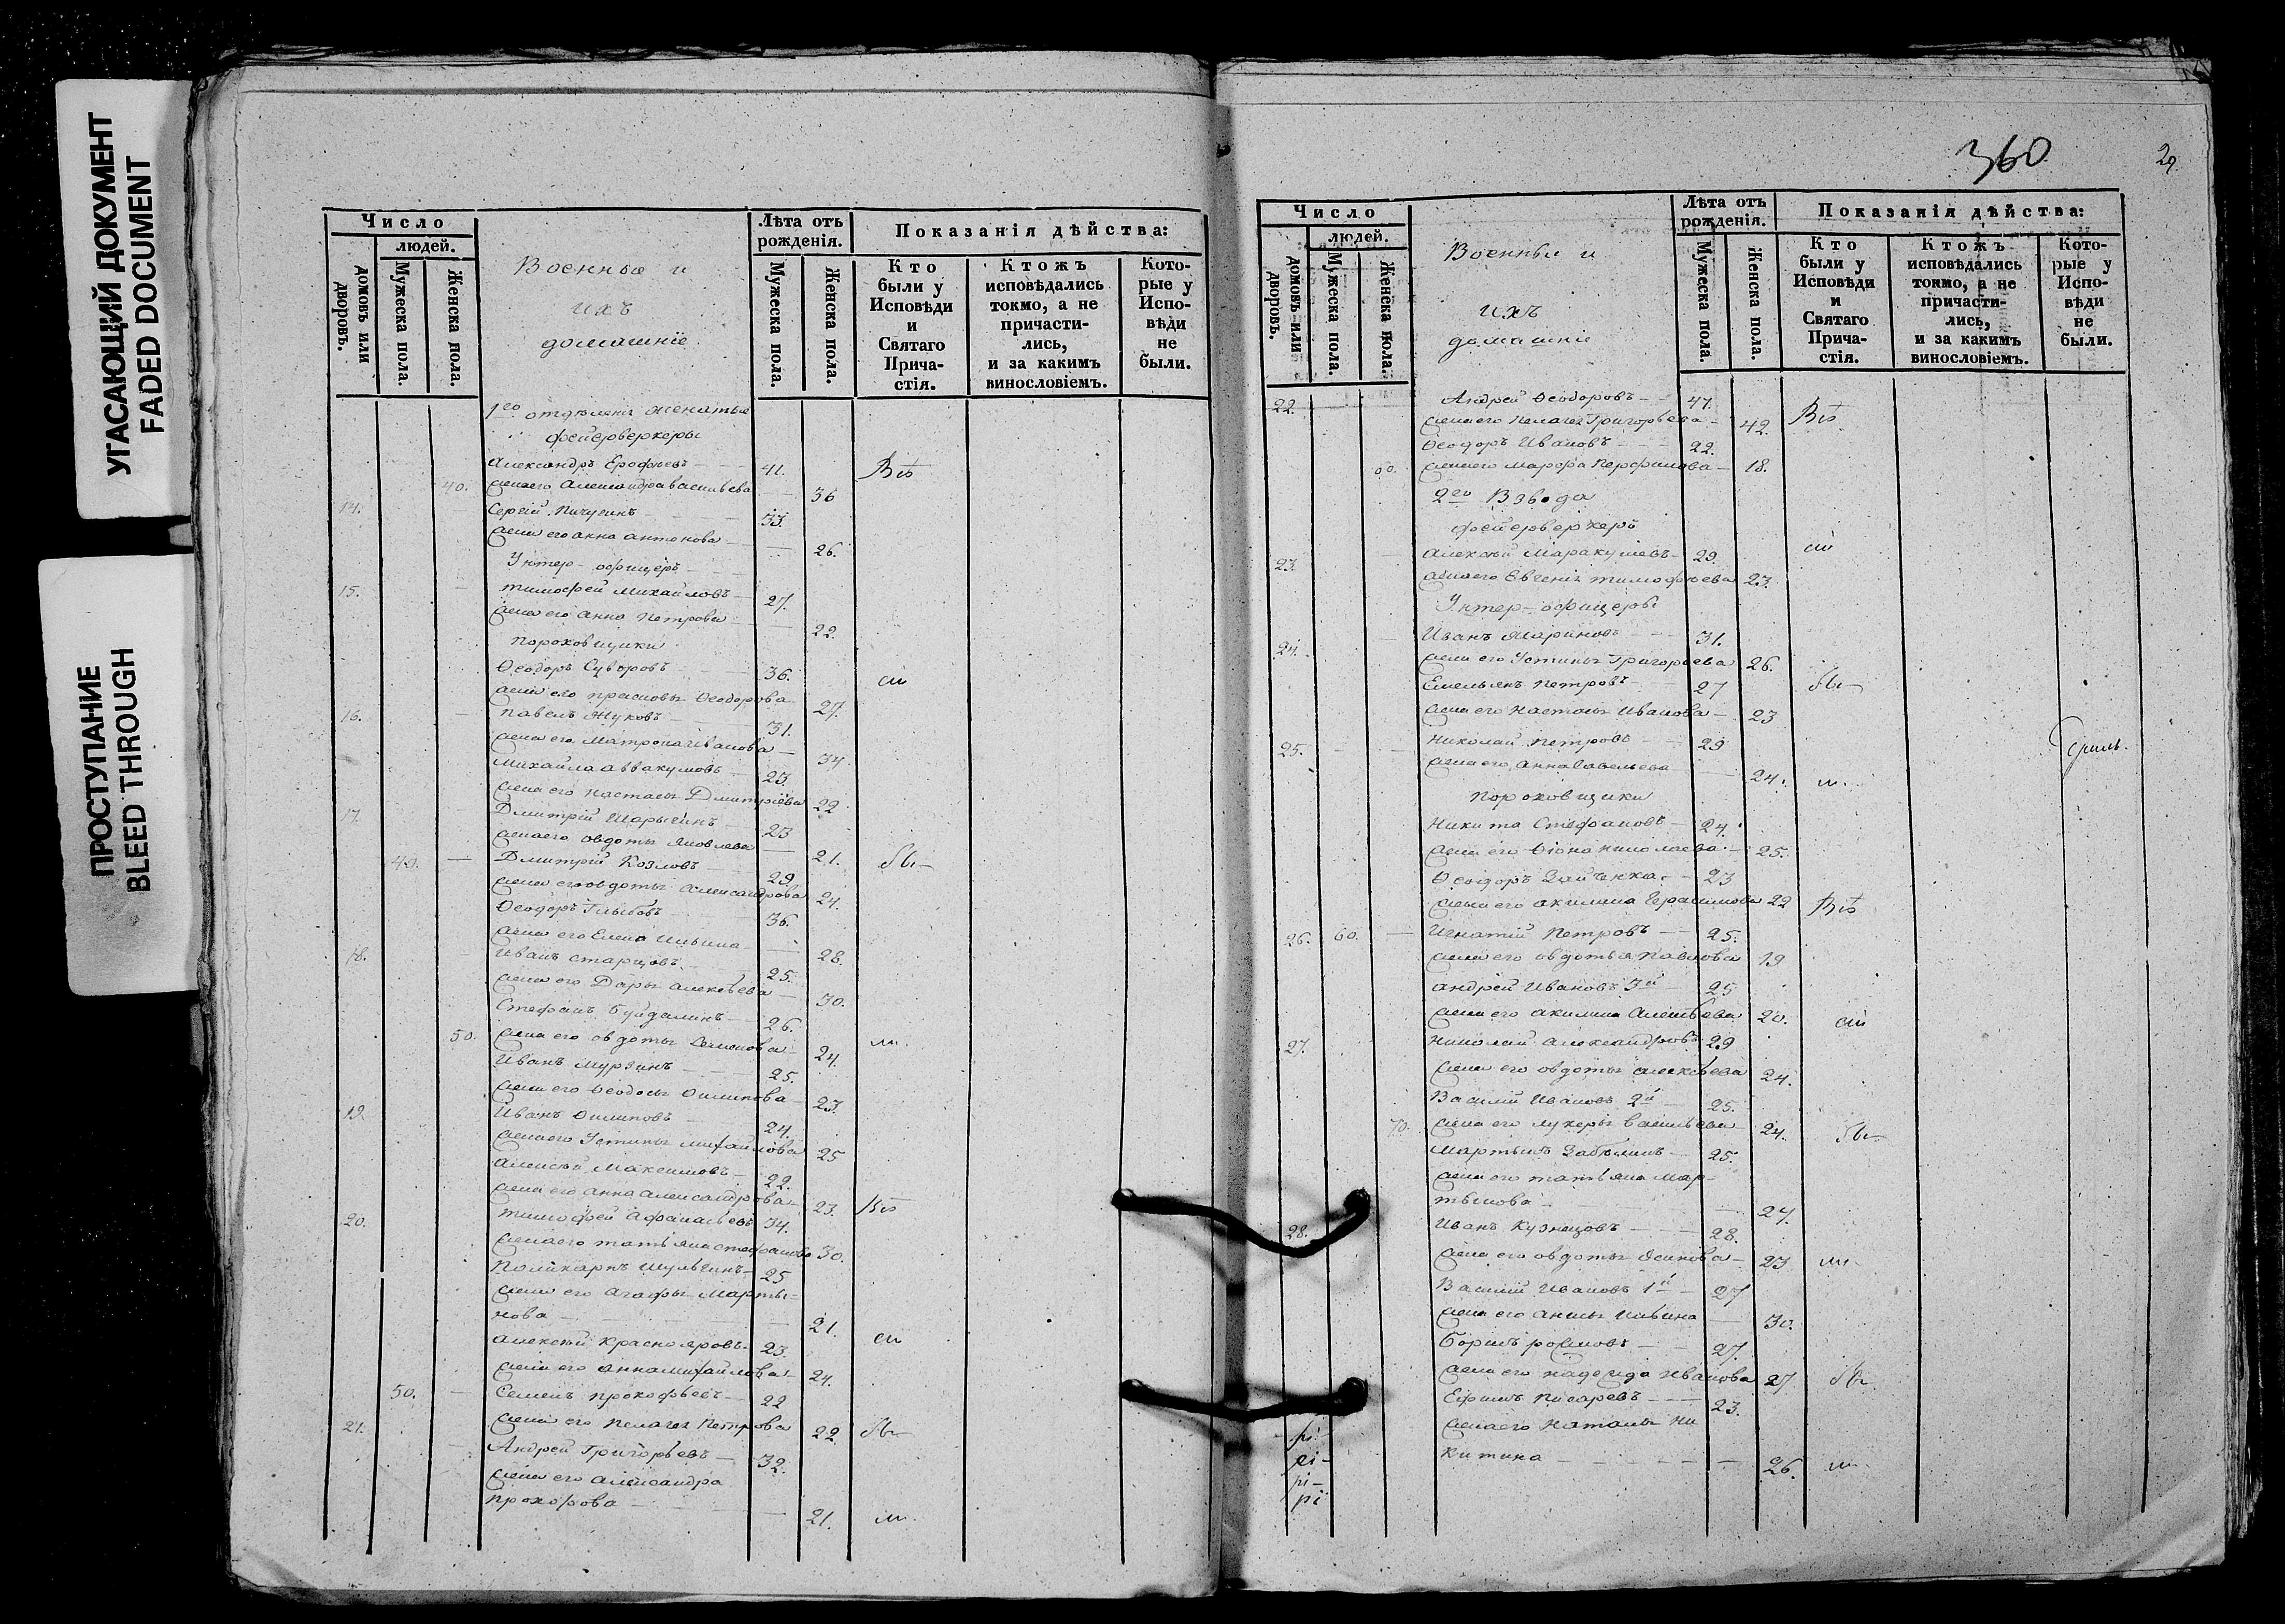 УГАСАЮЩИЙ ДОКУМЕНТ
FADED DOCUMENT
ПРОСТУПАНИЕ
BLEED THROUGH
Число
людей.
домовъ или дворовъ.
Мужеска пола.
Женска пола.
Военныя и
ихъ
домашніе
Лѣта отъ рожденія.
Мужеска пола.
Женска пола.
Показанія дѣйства:
Кто были у Исповѣди и Святаго Прича-стія.
Ктожъ исповѣдались токмо, а не причасти-лись, и за какимъ винословіемъ.
Кото-рые у Испо-вѣди не были.
1го отделенія женатые
фейерверкеры
Александръ Ерофѣевъ 41. Всѣ
40. жена его Александра Васильева 36
14. Сергій Пичугинъ 33.
жена его Анна Антонова 26.
Унтер-офицеръ
15. Тимофей Михайловъ 27.
жена его Анна Петрова 22.
пороховщики
Ѳеодоръ Суворовъ 36. сіи
жена его Прасковья Ѳеодорова 27.
16. Павелъ Жуковъ 31.
жена его Матрона Иванова 34
Михайла Аввакумовъ 23
жена его Настасья Дмитріева 22
17. Дмитрій Шарыгинъ 23
жена его Овдотья Яковлева 21.
40. Дмитрій Козловъ 29 бы-
жена его Овдотья Александрова 24.
Ѳеодоръ Глыбовъ 36.
жена его Елена Ильина 28.
18. Иванъ Старцовъ 25.
жена его Дарья Алексѣева 30.
Стефанъ Буйдалинъ 26.
50. жена его Овдотья Семенова 24. ли.
Иванъ Мурзинъ 25.
жена его Ѳеодосья Филипова 23.
19. Иванъ Филиповъ 24.
жена его Устинья Михайлова 25
Алексѣй Максимовъ 22.
жена его Анна Александрова 23. Всѣ
20. Тимофей Афанасьевъ 34.
жена его Татьяна Стефанова 30.
Поликарпъ Шульгинъ 25
жена его Агафья Марты-
нова 21.
Алексѣй Краснояровъ 23. сіи
жена его Анна Михайлова 24.
50. Семенъ Прокофьевъ 22
21. жена его Пелагея Петрова 22. бы-
Андрей Григорьевъ 32.
жена его Александра
Прохорова 21. ли.
360
29
Число
людей.
домовъ или дворовъ.
Мужеска пола.
Женска пола.
Военныя и
ихъ
домашніе
Лѣта отъ рожденія.
Мужеска пола.
Женска пола.
Показанія дѣйства:
Кто были у Исповѣди и Святаго Прича-стія.
Ктожъ исповѣдались токмо, а не причасти-лись, и за какимъ винословіемъ.
Кото-рые у Испо-вѣди не были.
22. Андрей Ѳеодоровъ 47.
жена его Пелагея Григорьева 42. Всѣ
Ѳеодоръ Ивановъ 22.
60. жена его Марфа Порфилова 18.
2го Взвода
фейерверкеръ
23. Алексѣй Маракушевъ 29. сіи
жена его Евгенія Тимофѣева 23.
Унтер-офицеры
24. Иванъ Мариновъ 31.
жена его Устинья Григорьева 26.
Емельянъ Петровъ 27 бы-
жена его Настасья Иванова 23
25. Николай Петровъ 29
жена его Анна Савельева 24. ли.
пороховщики
Никита Стефановъ 24.
жена его Ѳіона Николаева 25.
Ѳеодоръ Зайченка 23
жена его Акилина Герасимова 22 Всѣ
26. 60. Игнатій Петровъ 25.
жена его Овдотья Павлова 19
Андрей Ивановъ 3й 25
жена его Акилина Алексѣева 20. сіи
27. Николай Александровъ 29
жена его Овдотья Алексѣева 24.
Василій Ивановъ 2й 25.
70. жена его Лукерья Васильева 24. бы-
Мартынъ Забѣлинъ 25.
жена его Татьяна Мар-
тынова 24.
28. Иванъ Кузнецовъ 28.
жена его Овдотья Осипова 23 ли-
Василій Ивановъ 1й 27
жена его Анисья Ильина 30.
Борисъ Романовъ 27.
жена его Надежда Иванова 27 бы-
Ефимъ Писаревъ 23.
жена его Наталья Ни
китина 26. ли.